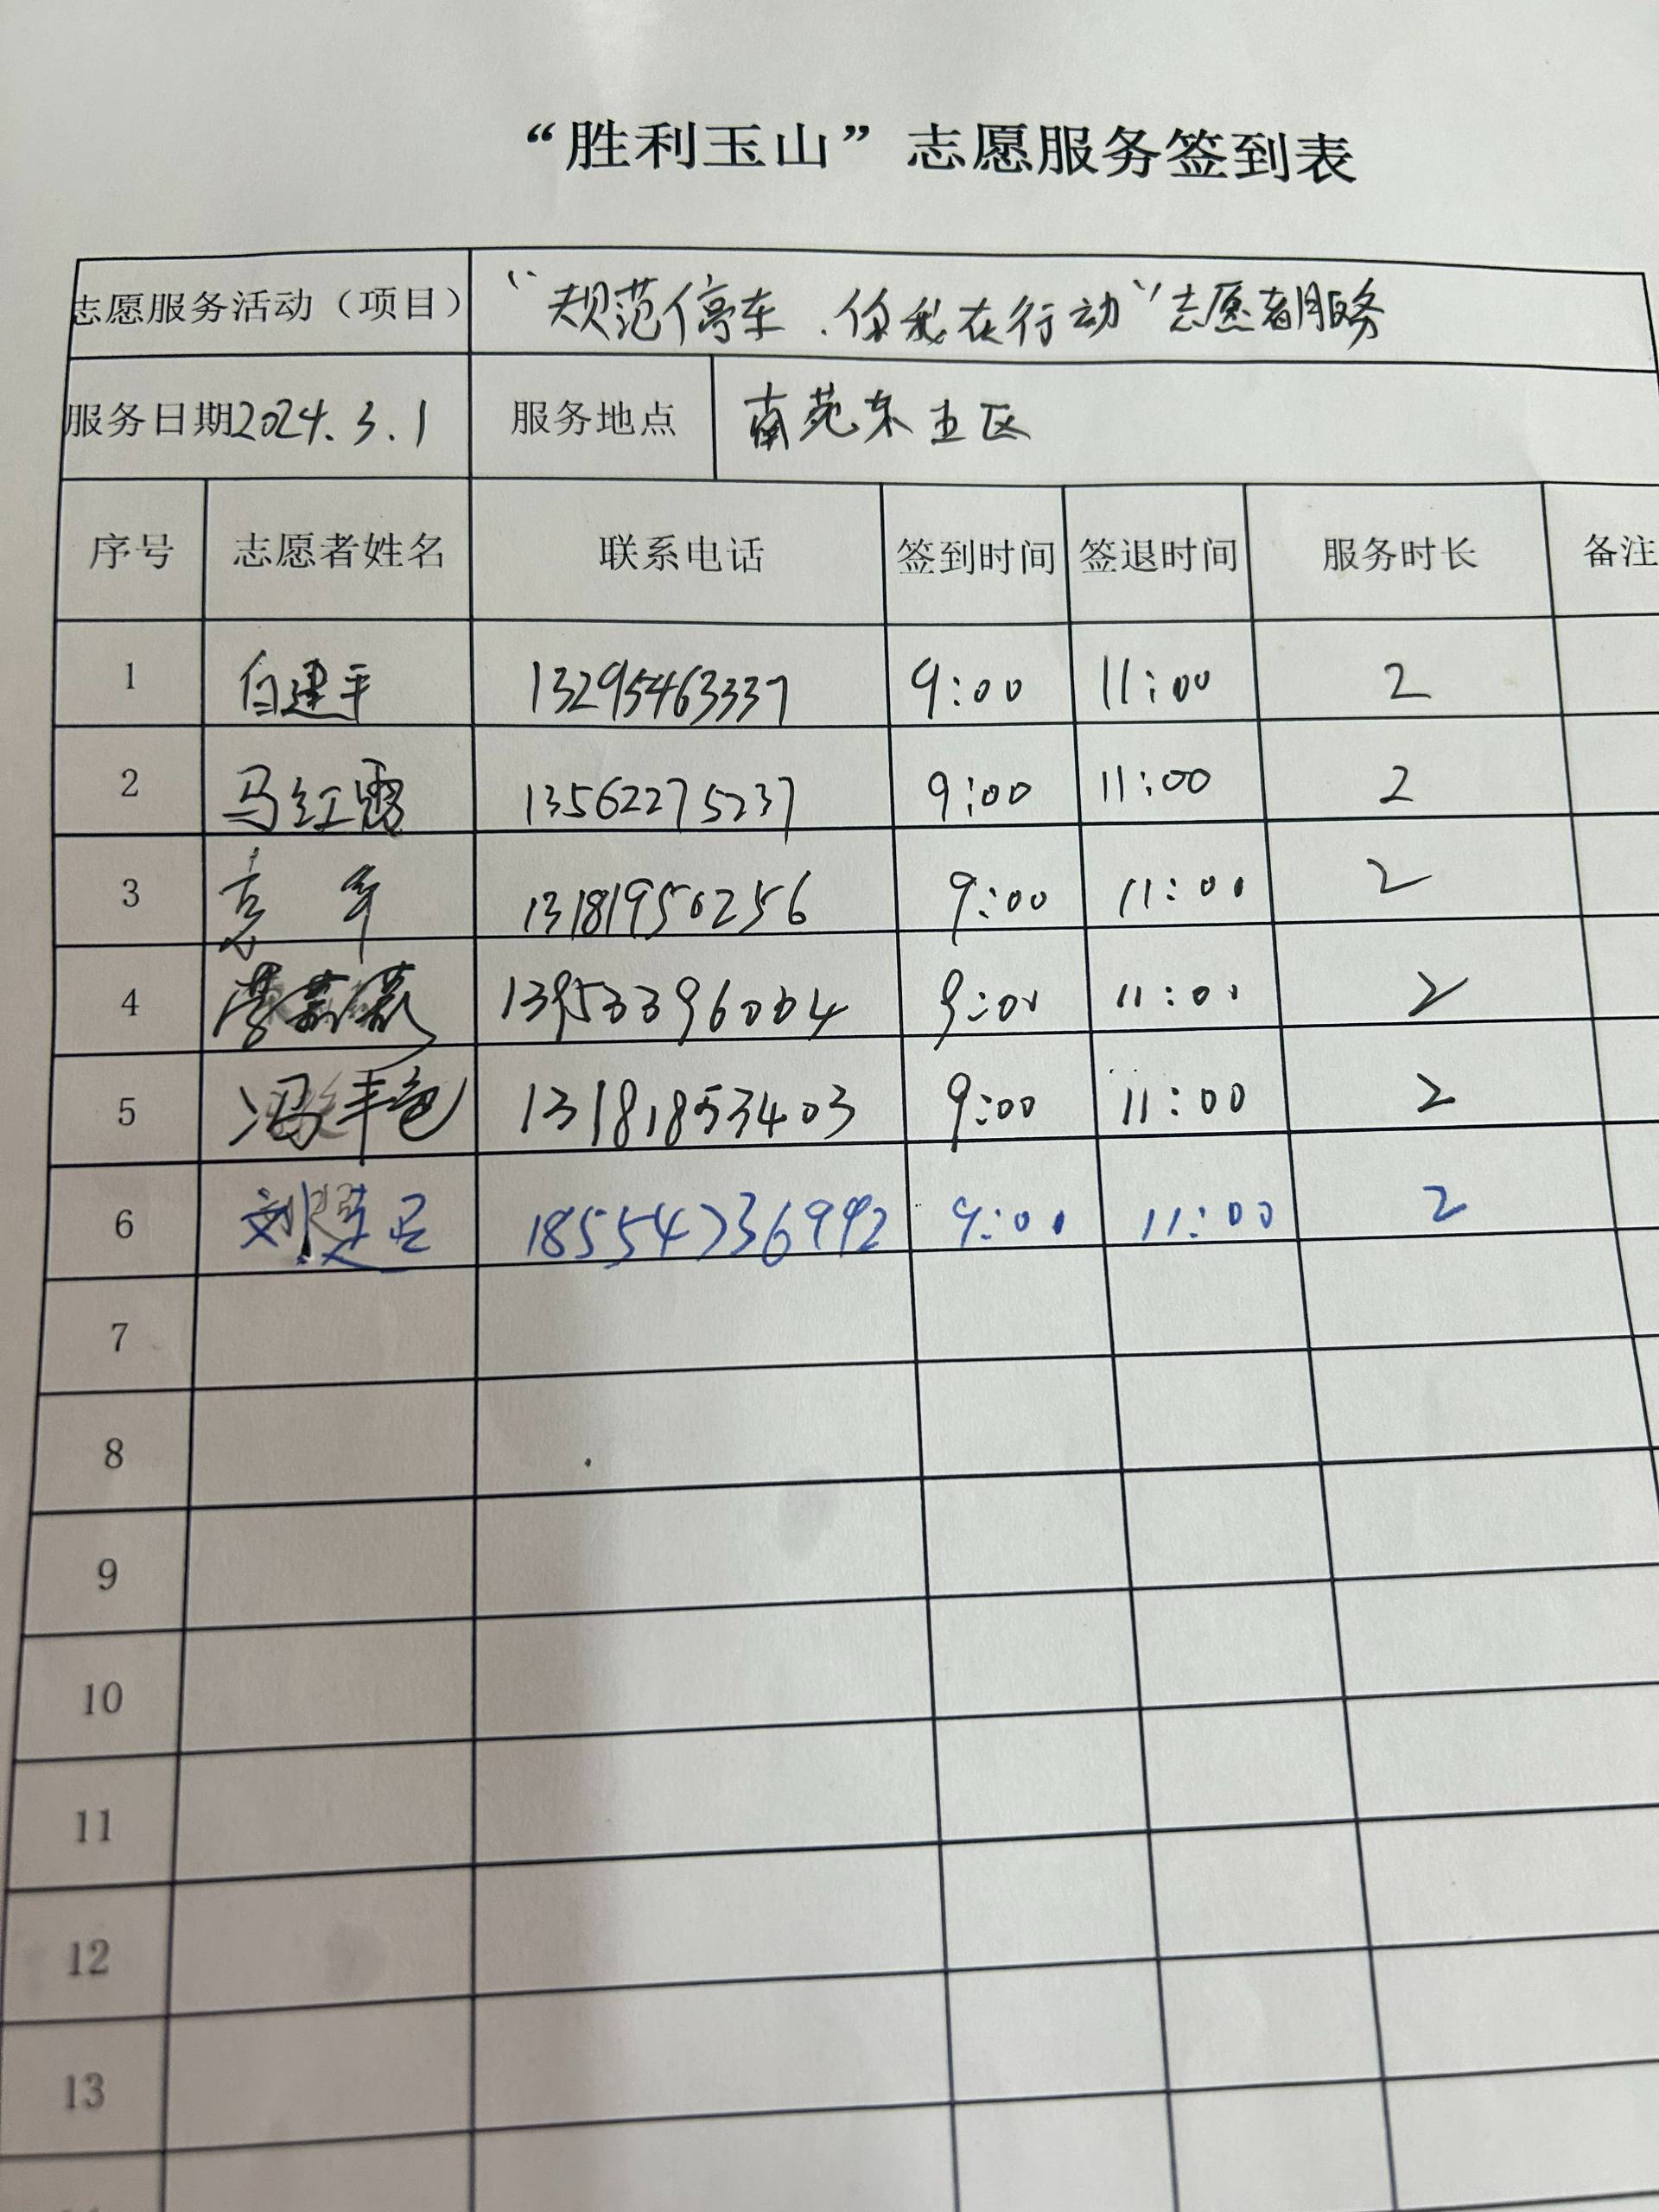 “胜利玉山”志愿服务签到表
志愿服务活动（项目） “规范停车、你我在行动”志愿者服务
服务日期2024.3.1 服务地点 南苑东五区
序号 志愿者姓名 联系电话 签到时间 签退时间 服务时长 备注
1 白建平 13295463337 9:00 11:00 2
2 马红霞 13562275237 9:00 11:00 2
3 13181950256 9:00 11:00 2
4 13953396004 9:00 11:00 2
5 冯丰色 13181853403 9:00 11:00 2
6 刘连臣 18554736992 9:00 11:00 2
7
8
9
10
11
12
13